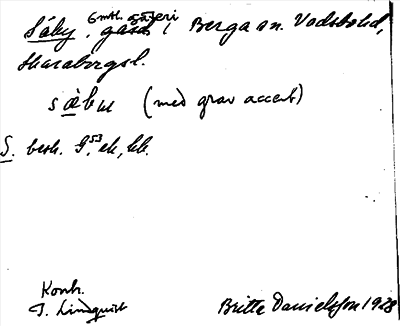 Gmtl. säteri
Säby, gård i Berga sn. Vadsbohd,
Skaraborgsl.
sæ̀bu (med grav accent)
S. besk. G.53 ek, bk.
Kontr.
I. Lindquist
Britta Danielsson 1928